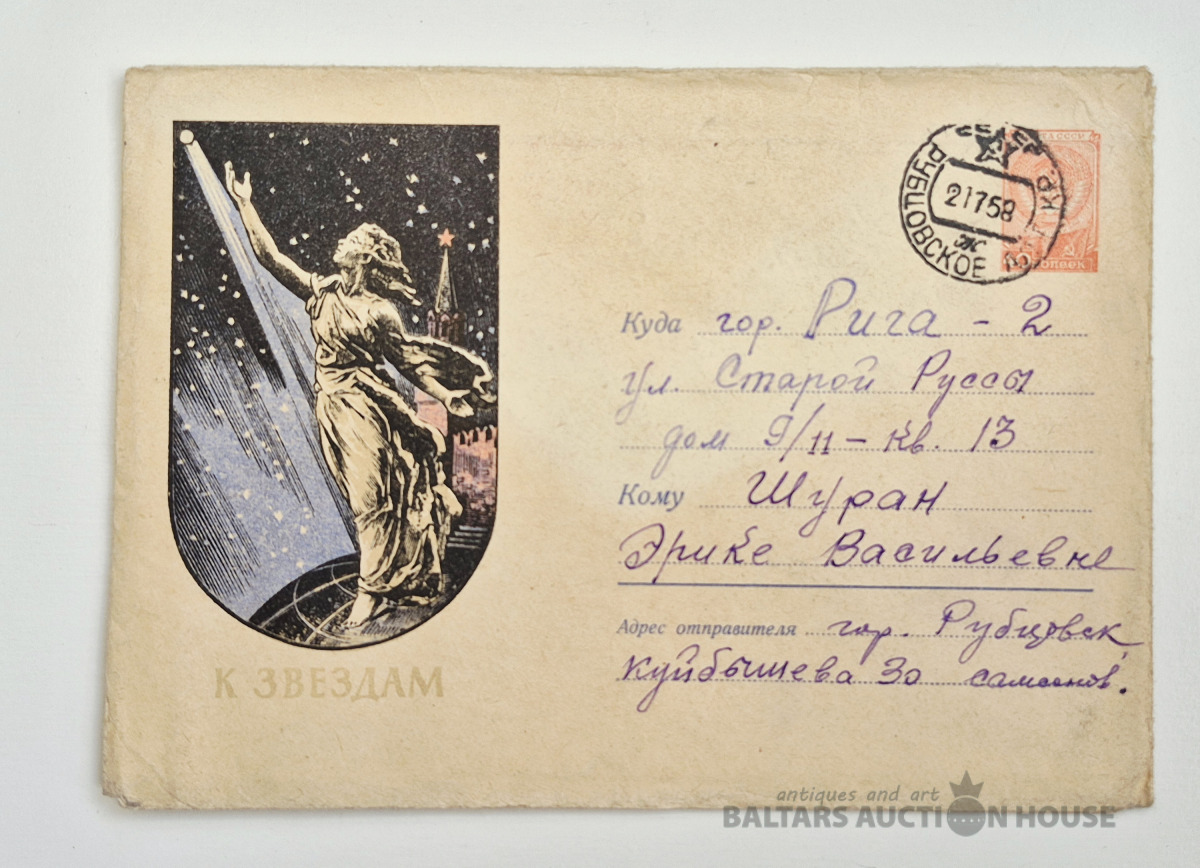 К ЗВЕЗДАМ
РУБЦОВСКОЕ
21758
Ж
КР.
А СССР
КОПЕЕК
Куда гор. Рига - 2
ул. Старой Руссы
дом 9/11 - кв. 13
Кому Шуран
Эрике Васильевне
Адрес отправителя гор. Рубцовск,
Куйбышева 30 самсонов.
antiques and art
BALTARS AUCTION HOUSE